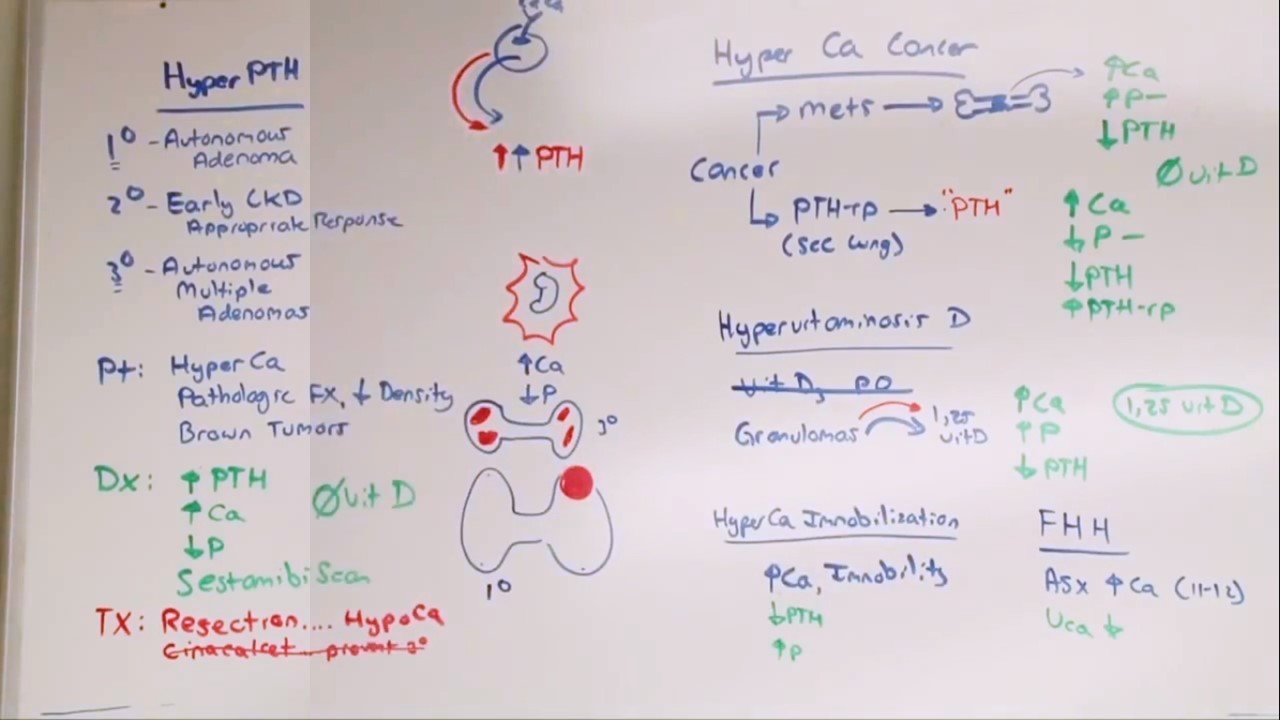 Hyper PTH
1° - Autonomous
Adenoma
2° - Early CKD
Appropriate Response
3° - Autonomous
Multiple
Adenomas
Pt: HyperCa
Pathologic FX, ↓ Density
Brown Tumors
Dx: ↑ PTH
↑ Ca
↓ P
Ø Vit D
Sestamibi Scan
TX: Resection.... HypoCa
Cinacalcet... prevent 3°
↑↑ PTH
D
↑Ca
↓P
3°
1°
Hyper Ca Cancer
Cancer
→ mets →
↑Ca
↑P—
↓PTH
Ø Vit D
PTH-rp → "PTH"
(SCC Lung)
↑ Ca
↓ P —
↓PTH
↑PTH-rp
Hypervitaminosis D
Vit D, PO
Granulomas
1,25
vitD
↑Ca
↑ P
↓ PTH
1,25 vit D
HyperCa Immobilization
↑Ca, Immobility
↓PTH
↑P
FHH
Asx ↑Ca (11-12)
Uca ↓